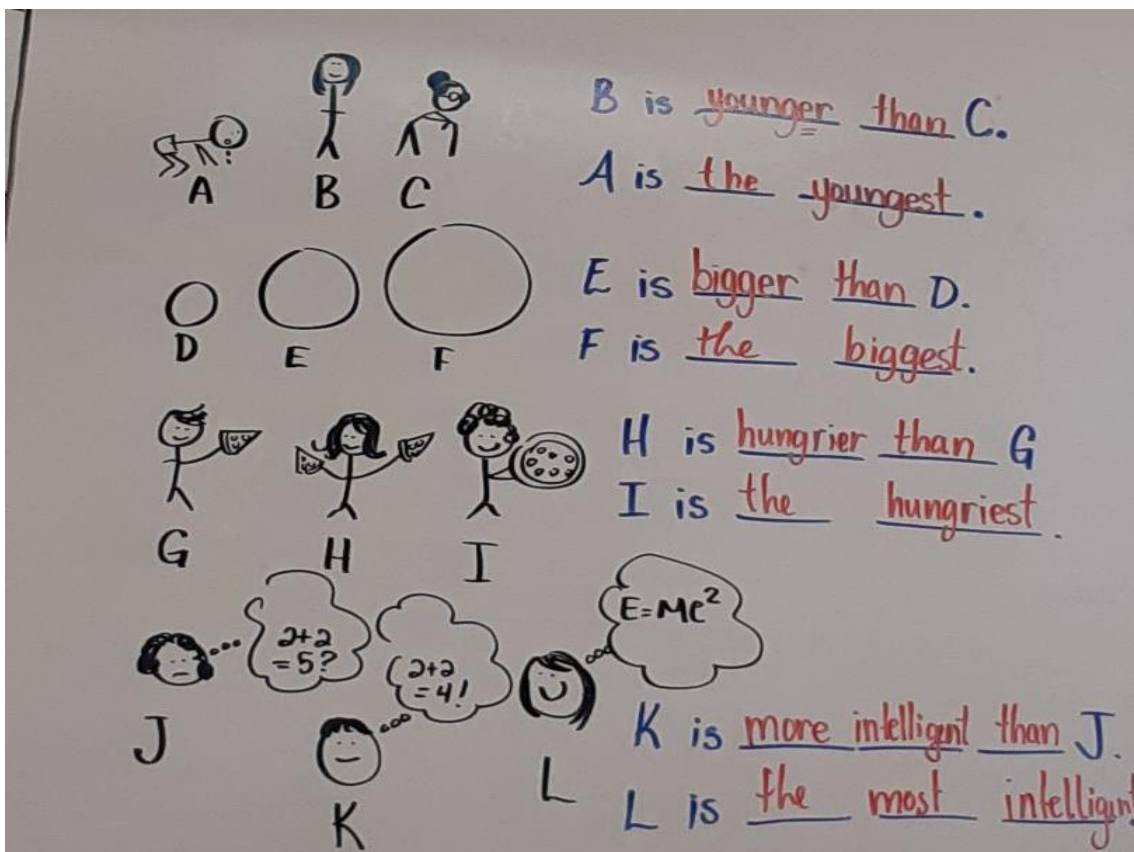 B is younger than C.
A is the youngest.
A B C
E is bigger than D.
F is the biggest.
D E F
H is hungrier than G
I is the hungriest.
G H I
2+2
=5?
2+2
=4!
E=MC²
J K L
K is more intelligent than J.
L is the most intelligent.